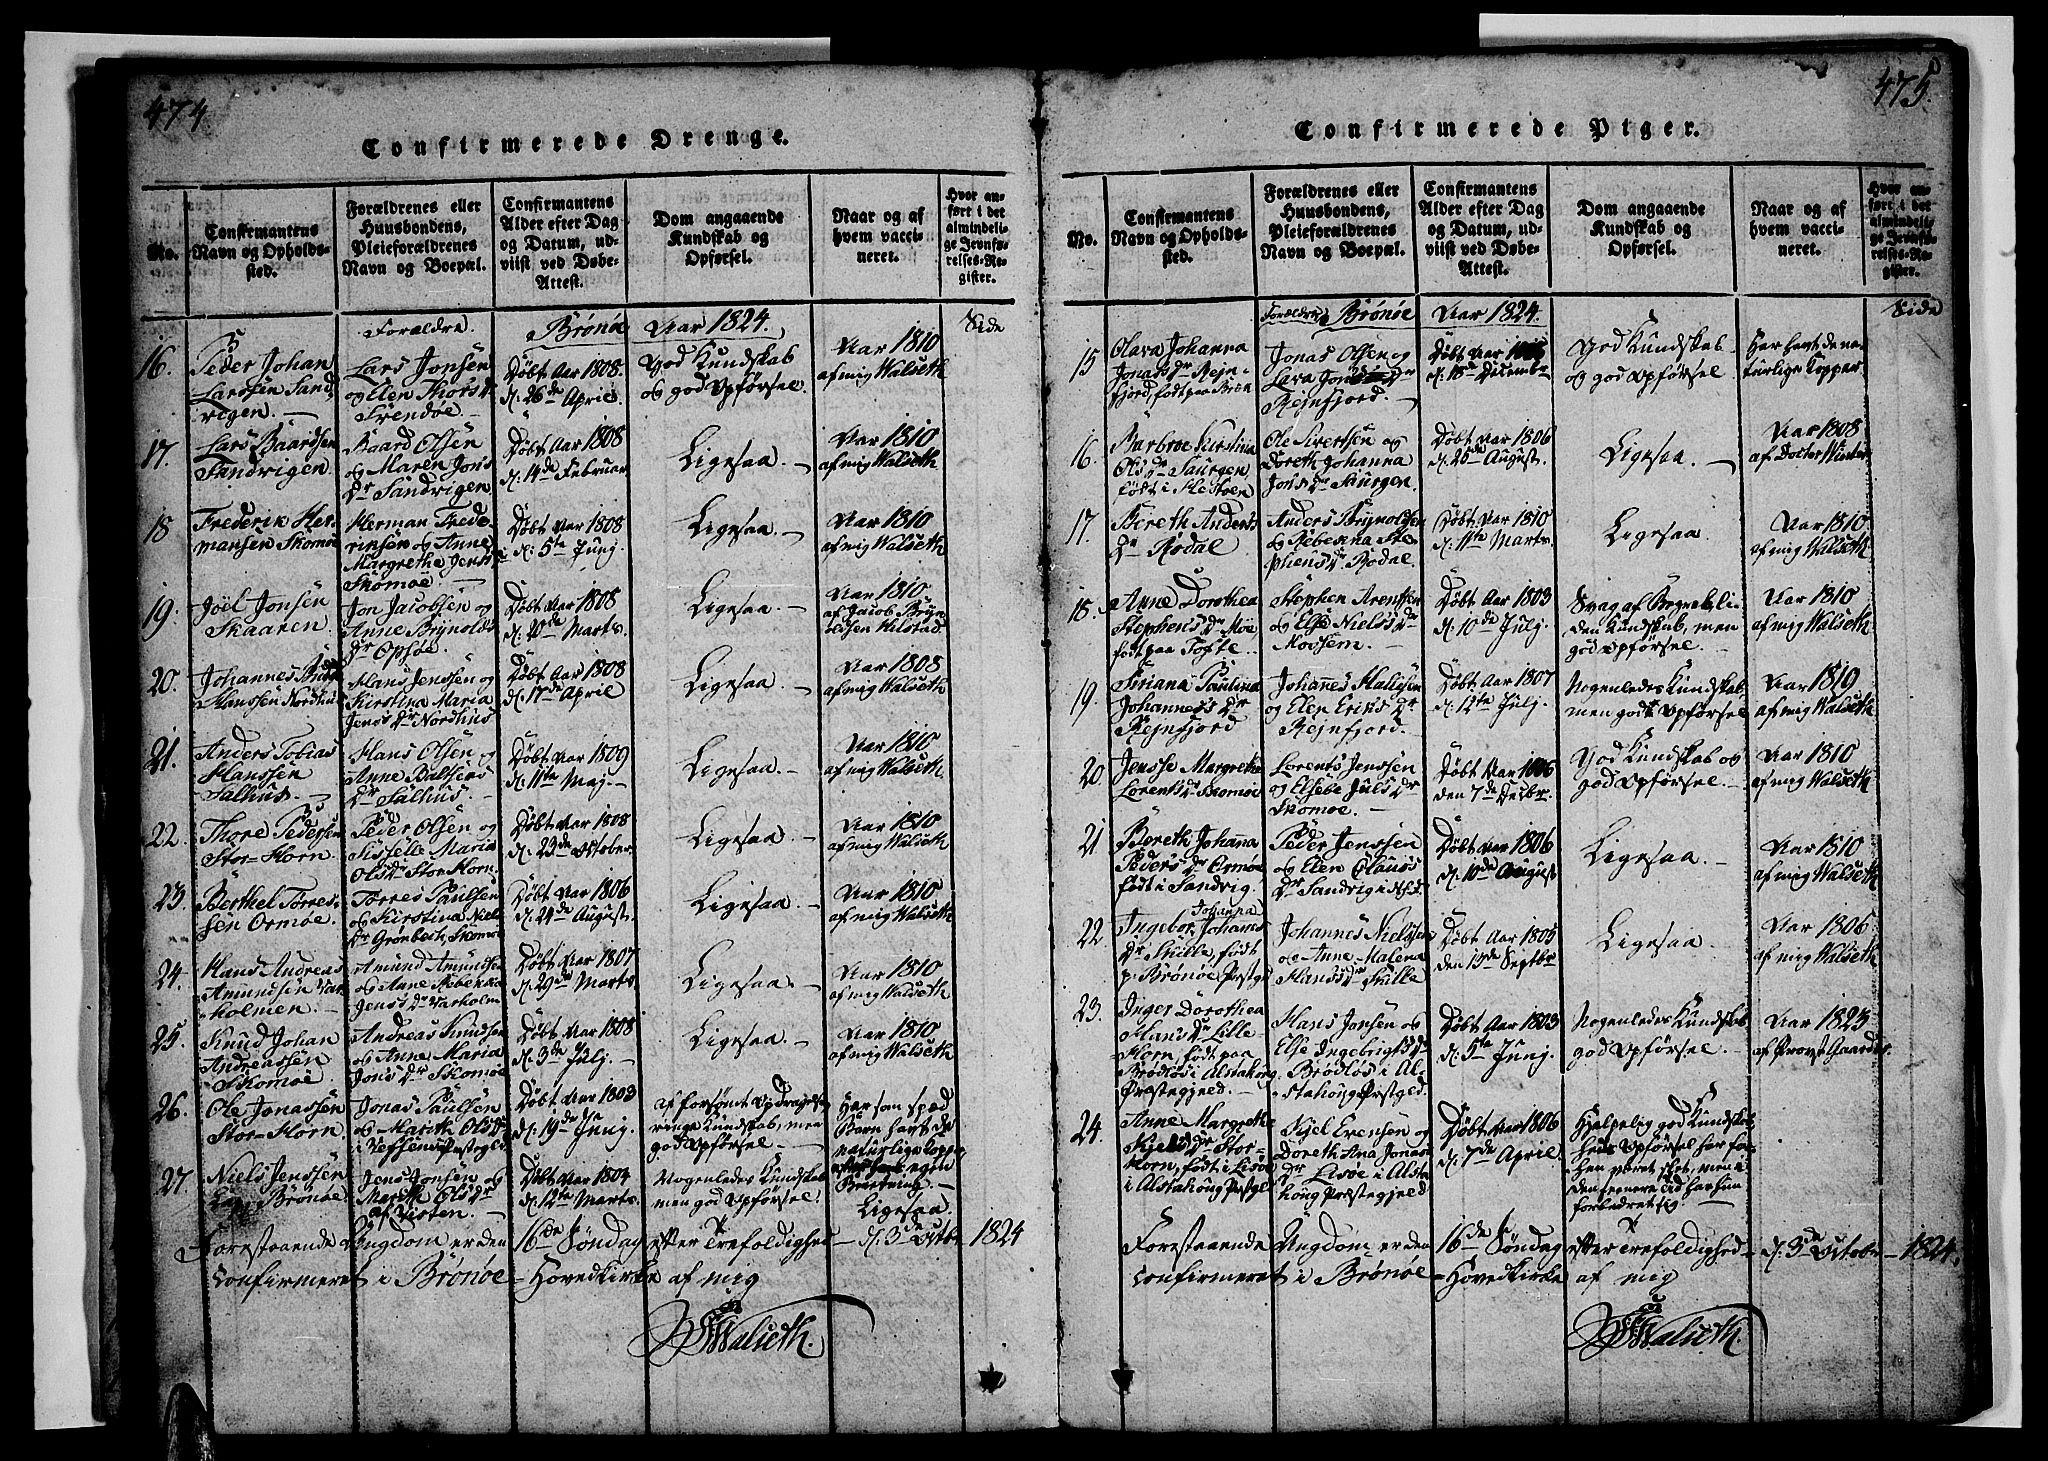 474.
Confirmerede Drenge.
No.
Confirmantens
Navn og Opholds-
sted.
Forældrenes eller
Huusbondens,
Pleieforældrenes
Navn og Boepæl.
Confirmantens
Alder efter Dag
og Datum, ud-
viist ved Døbe-
Attest.
Dom angaaende
Kundskab og
Opførsel.
Naar og af
hvem vacci-
neret.
Hvor an-
ført i det
almindeli-
ge Jevnfø-
relses-Re-
gister.
Forældre.
Brönöe
Aar 1824.
Side
16.
Peder Johan
Larssen Sand-
vigen.
Lars Jonsen
og Elen Thors Dr
Svendöe.
Döbt Aar 1808.
d: 26de April.
God Kundskab
og god Opförsel.
Aar 1810
af mig Walseth
17.
Lars Baardsen
Sandvigen
Baard Olsen
og Maren Jons
Dr Sandvigen
Döbt Aar 1808
d: 14de Februar
Ligesaa.
Aar 1810
af mig Walseth
18
Frederik Her-
mansen Skomoe
Herman Frede-
riksen og Anne
Margrethe Jens Dr
Skomoe
Döbt Aar 1808
d: 5te Junj.
Ligesaa.
Aar 1810
af mig Walseth
19.
Joel Jonsen
Skaaren.
Jon Jacobsen og
Anne Brynolds
Dr Opsöe.
Döbt Aar 1808
d: 20de Marts.
Ligesaa.
Aar 1810
af Jacob Bryn-
oldsen Hilstad
20.
Johannes
Hanssen Nordhuus
Hans Jenssen og
Kirstina Maria
Jens Dr Nordhus
Döbt Aar 1808
d: 17de April
Ligesaa.
Aar 1808
af mig Walseth
21.
Anders Tobias
Hanssen
Salhus.
Hans Olsen og
Anne Baltsers
Dr Salhus.
Döbt Aar 1809
d: 11te Maj.
Ligesaa.
Aar 1810
af mig Walseth
22.
Thore Pedersen
Stor-Horn.
Peder Olsen og
Sisselle Maria
Ols Dr Stor Horn.
Döbt Aar 1808
d: 23de October.
Ligesaa.
Aar 1810
af mig Walseth
23.
Berthel Torres-
sen Ormöe.
Torres Paulsen
og Kirstina Niels
Dr Grönbech, Skomoe
Döbt Aar 1806
d: 24de August.
Ligesaa.
Aar 1810
af mig Walseth
24.
Hans Andreas
Amundsen Var-
holmen.
Amund Amundsen
og Anne Rebekka
Jens Dr Varholm
Döbt Aar 1807
d: 29de Marts.
Ligesaa.
Aar 1810
af mig Walseth
25.
Knud Johan
Andreassen
Skomoe
Andreas Knudsen
og Anne Maria
Jons Dr Skomoe
Döbt Aar 1808
d: 3de Julj.
Ligesaa.
Aar 1810
af mig Walseth
26.
Ole Jonassen
Stor-Horn.
Jonas Paulsen
og Mareth Ols Dr
i Vefsens Præstegjeld
Döbt Aar 1803
d: 19de Junj.
af forsömt Opdragelse
ringe Kundskab, men
god Opförsel.
Har som spæd
Barn havt de
naturlige Kopper
egen
Beretning.
27.
Niels Jenssen
Brönöe.
Jens Jonsen og
Mareth Ols Dr
af Visten.
Döbt Aar 1804
d: 12te Marts.
Nogenledes Kundskab
men god Opförsel.
Ligesaa.
Forestaaende Ungdom er den 16de Söndag efter Trefoldighed d: 3de Octbr 1824
confirmeret i Brönöe Hovedkirke af mig
Walseth.
475.
Confirmerede Piger.
No.
Confirmantens
Navn og Opholds-
sted.
Forældrenes eller
Huusbondens,
Pleieforældrenes
Navn og Boepæl.
Confirmantens
Alder efter Dag
og Datum, ud-
viist ved Døbe-
Attest.
Dom angaaende
Kundskab og
Opførsel.
Naar og af
hvem vacci-
neret.
Hvor an-
ført i det
almindeli-
ge Jevnfø-
relses-Re-
gister.
Forældre
Brönöe
Aar 1824.
Side
15
Olava Johanna
Jonas Dr Rejn-
fjord, födt paa
Jonas Olsen og
Lava Dr
Rejnfjord.
Döbt Aar
d: 18de December
God Kundskab
og god Opförsel.
Har havt de na-
turlige Kopper.
16.
Barbroe Kirstina
Ols Dr Saurgen
födt i
Ole Sivertsen og
Doreth Johanna
Jons Dr
Döbt Aar 1806
d: 25de August.
Ligesaa.
Aar 1808
af Docter Winter
17.
Bereth Anders
Dr Rödal
Anders Brynoldsen
og Rebekka Ste-
phens Dr Rödal.
Döbt Aar 1810
d: 11te Marts.
Ligesaa
Aar 1810
af mig Walseth
18.
Anne Dorothea
Stephens Dr Möe
födt paa Tofte.
Stephen Arentsen
og Else Niels Dr
Döbt Aar 1803
d: 10de Julj
Svag af Begreb, li-
den Kundskab, men
god Opförsel.
Aar 1810
af mig Walseth
19.
Siriana Paulina
Johannes Dr
Rejnfjord
Johannes
og Elen Eriks Dr
Rejnfjord.
Döbt Aar 1807
d: 12te Julj.
Nogenledes Kundskab
men god Opförsel
Aar 1810
af mig Walseth
20
Jensse Margrethe
Lorents Dr Skomoe
Lorents Jenssen
og Elsebe Juls Dr
Skomoe.
Döbt Aar 1806
den 7de Decbr.
God Kundskab og
god Opförsel.
Aar 1810
af mig Walseth
21
Bereth Johanna
Peders Dr Ormöe
födt i Sandvig.
Peder Jenssen
og Elen Clauss
Dr Sandvig i
Döbt Aar 1806
d: 10de August
Ligesaa.
Aar 1810
af mig Walseth
22.
Ingebor Johanna Johannes
Dr Skille, födt
p. Brönöe Præstgd
Johannes Nielssen
og Anne Malena
Hans Dr Skille
Döbt Aar 1805
den 13de Septbr
Ligesaa.
Aar 1806
af mig Walseth
23.
Inger Dorothea
Hans Dr Lille
Horn, födt paa
Brödlös i Alstahoug
Præstegjeld.
Hans Jonsen og
Else Ingebrigts Dr
Brödlös i Al-
stahoug Præstgjeld.
Döbt Aar 1803
d: 5te Junj.
Nogenledes Kundskab
god Opförsel.
Aar 1823
af Provst
24.
Anne Margrethe
Kjels Dr Stor-
Horn, födt i Lisöe
i Alstahoug Præstgd
Kjel Evensen og
Doreth Ana Jonas
Dr Lisöe i Alsta-
houg Præstegjeld.
Döbt Aar 1806
d: 7de April.
Hjelpelig god Kundskab
hendes Opförsel har för-
hen været slet, men i
den senere Tid har hun
forbedret sig.
Forestaaende Ungdom er den 16de Söndag efter Trefoldighed d: 3de Octobr 1824.
confirmeret i Brönöe Hovedkirke af mig
Walseth.